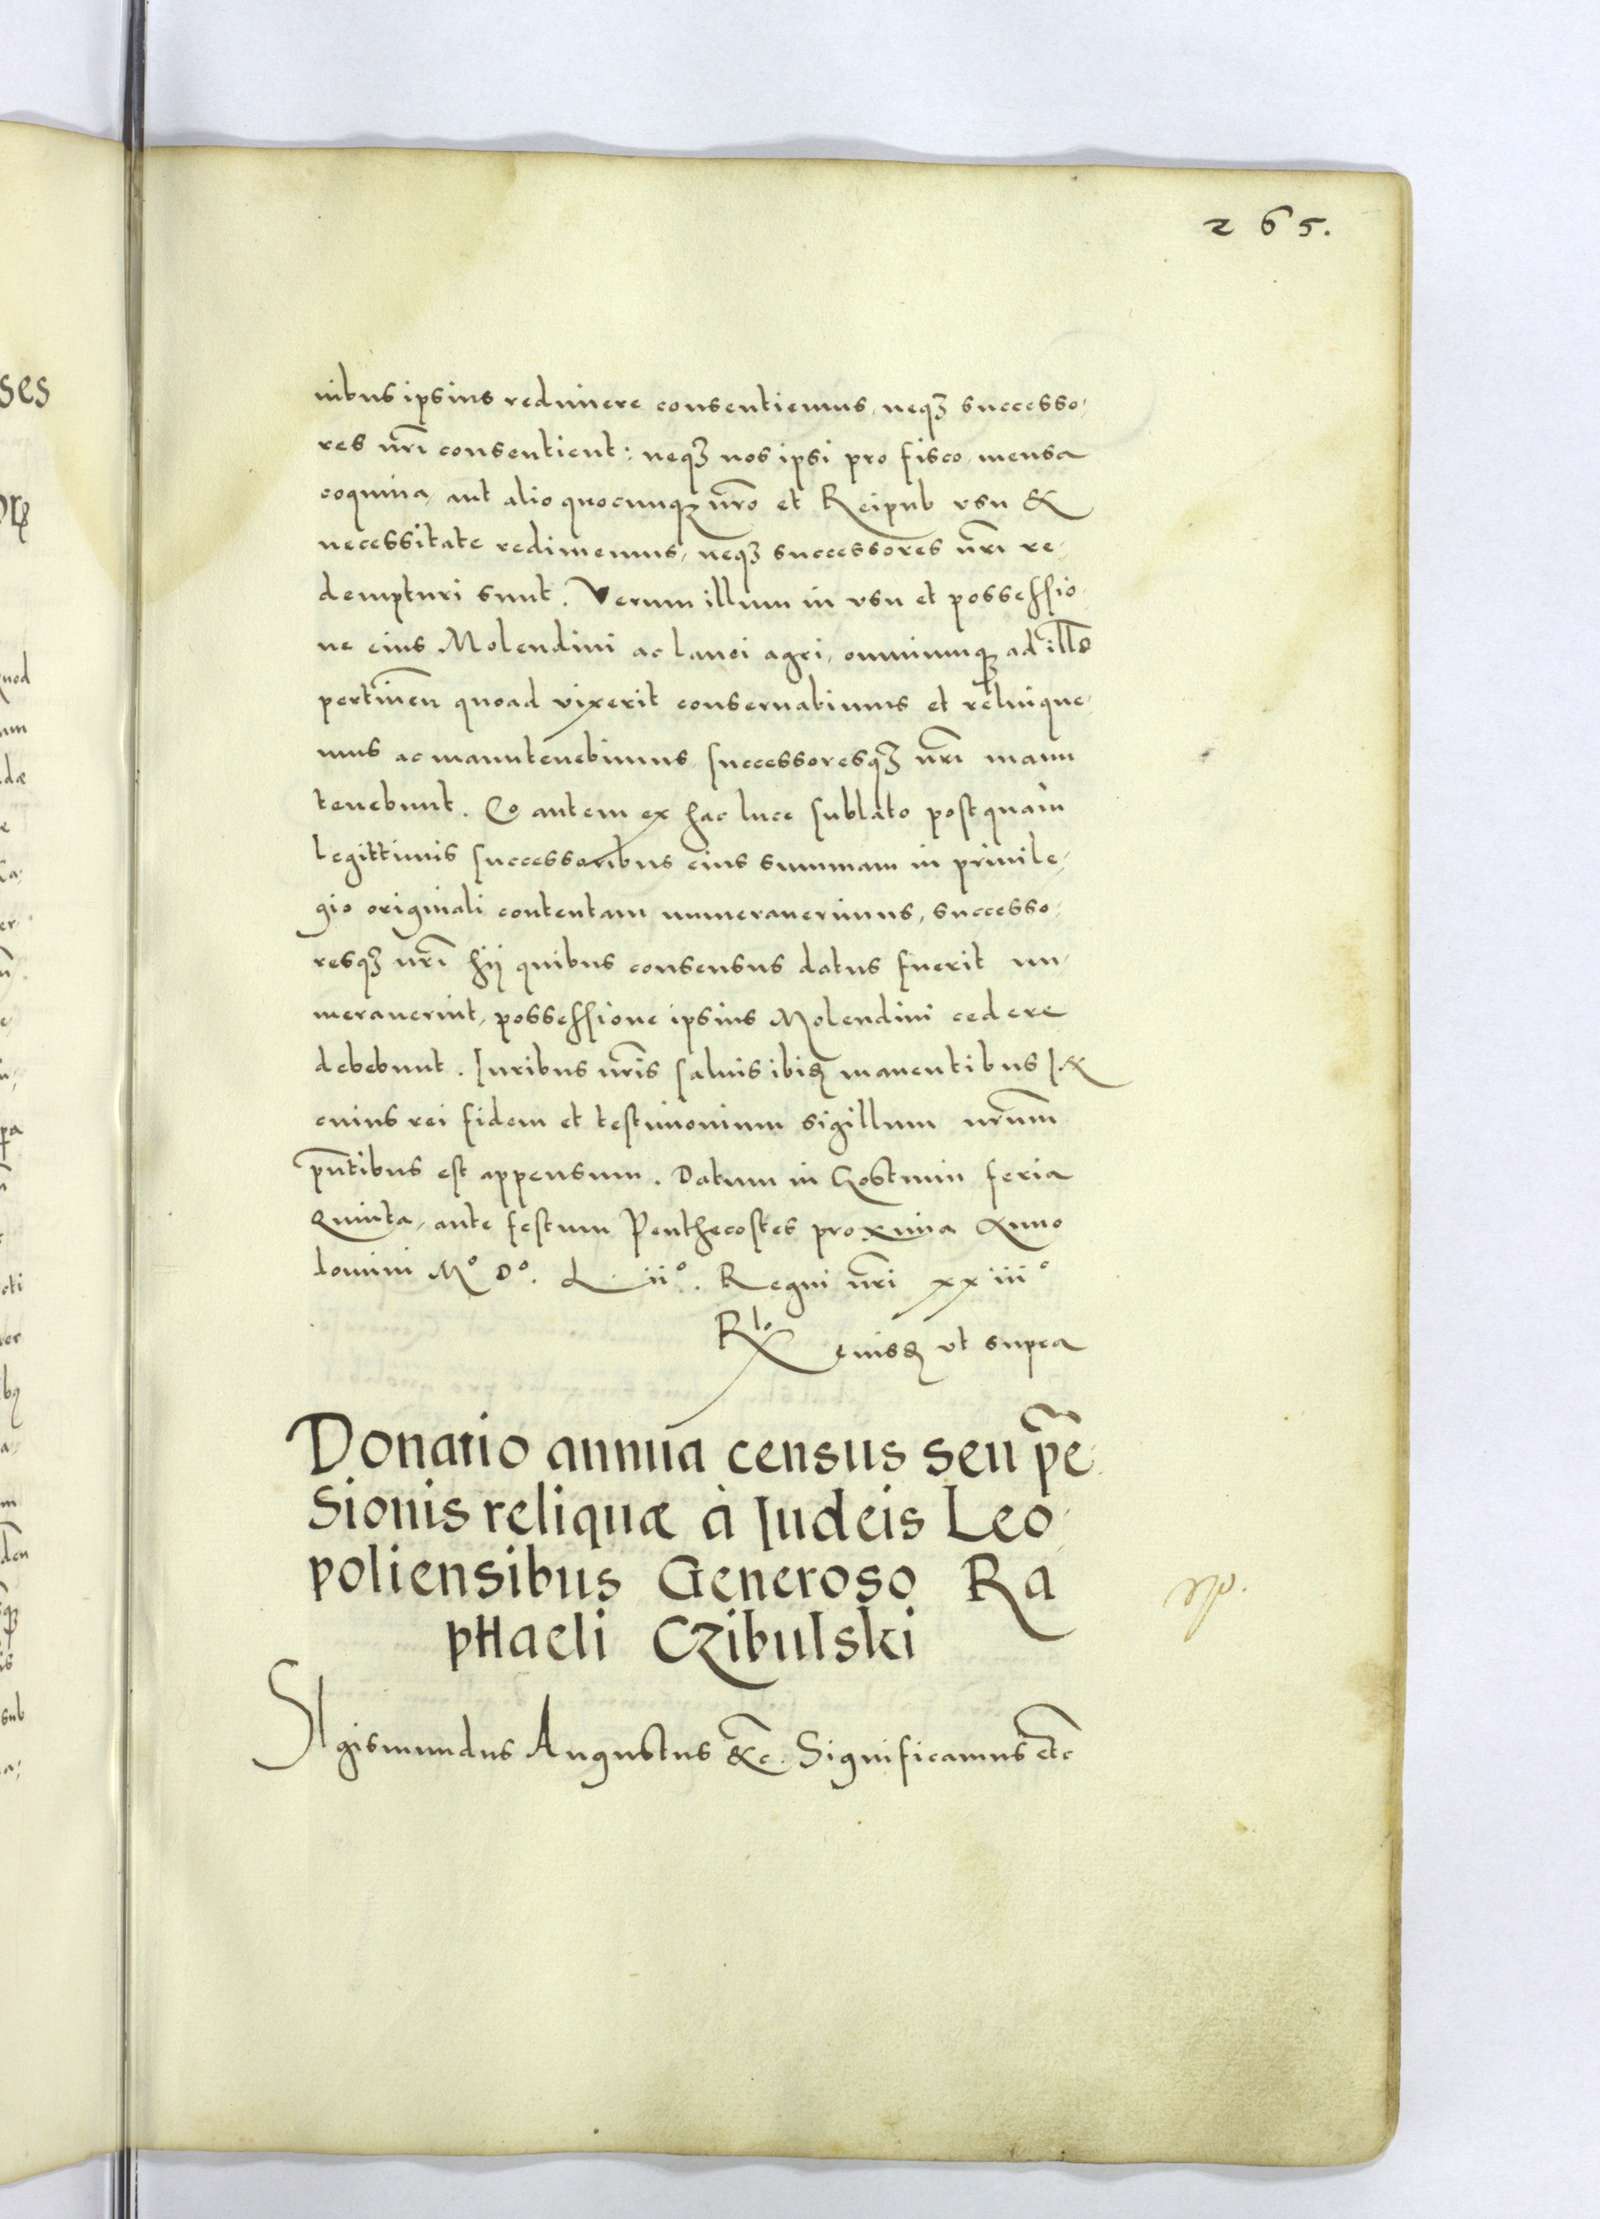 265.
nibus ipsius redimere consentiemus, neqꝫ successo,
res nr̃i consentient: neqꝫ nos ipsi pro fisco, mensa
coquina, aut alio quocunqꝫ nr̃o et Reipub vsu &
necessitate redimemus, neqꝫ successores nr̃i re,
dempturi sunt. Verum illum in vsu et possessio,
ne eius Molendini ac lanei agri, omniumqꝫ ad illũ
pertineñ quoad vixerit conseruabimus et relinque,
mus ac manutenebimus successoresqꝫ nr̃i manu
tenebunt. Eo autem ex hac luce sublato postquam
legittimis successoribus eius summam in priuile,
gio originali contentam numerauerimus, successo,
resqꝫ nr̃i hij quibus consensus datus fuerit nu,
merauerint, possessione ipsius Molendini cedere
debebunt. Juribus nr̃is saluis ibiꝫ manentibus In
cuius rei fidem et testimonium sigillum nr̃um
pñtibus est appensum. Datum in Gostinin feria
Quinta, ante festum Penthecostes proxima Anno
domini Mº Dº. L iiº. Regni nr̃i xxiiiº
Rlo eiusꝫ vt supra
Donatio annua census seu pẽ,
Sionis reliquæ à Judeis Leo,
poliensibus Generoso Ra
phaeli Czibulski
SIgismundus Augustus &c̃. Significamus etc̃